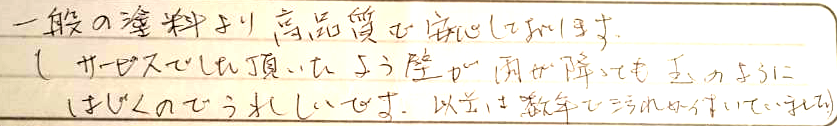 一般の塗料より高品質で安心しております。
(サービスでして頂いたよう壁が雨が降っても玉のように
はじくのでうれしいです。以前は数年で汚れが付いていました)